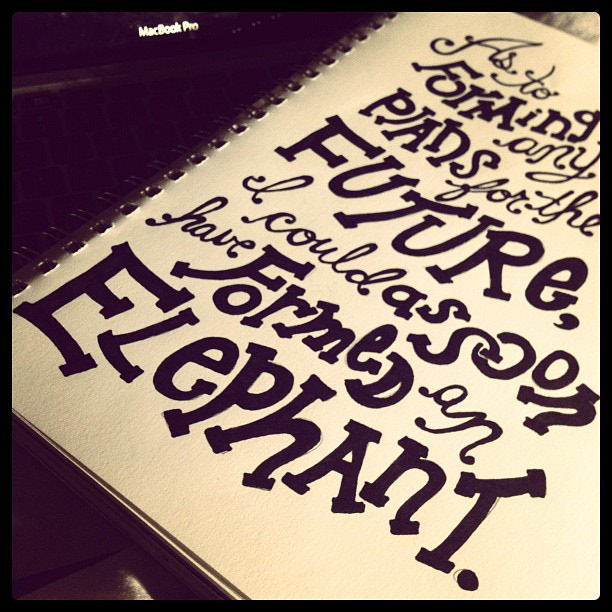 MacBook Pro
As to
FORMING
any
PLANS
for the
FUTURE,
I could as soon
have FORMED an
ELEPHANT.